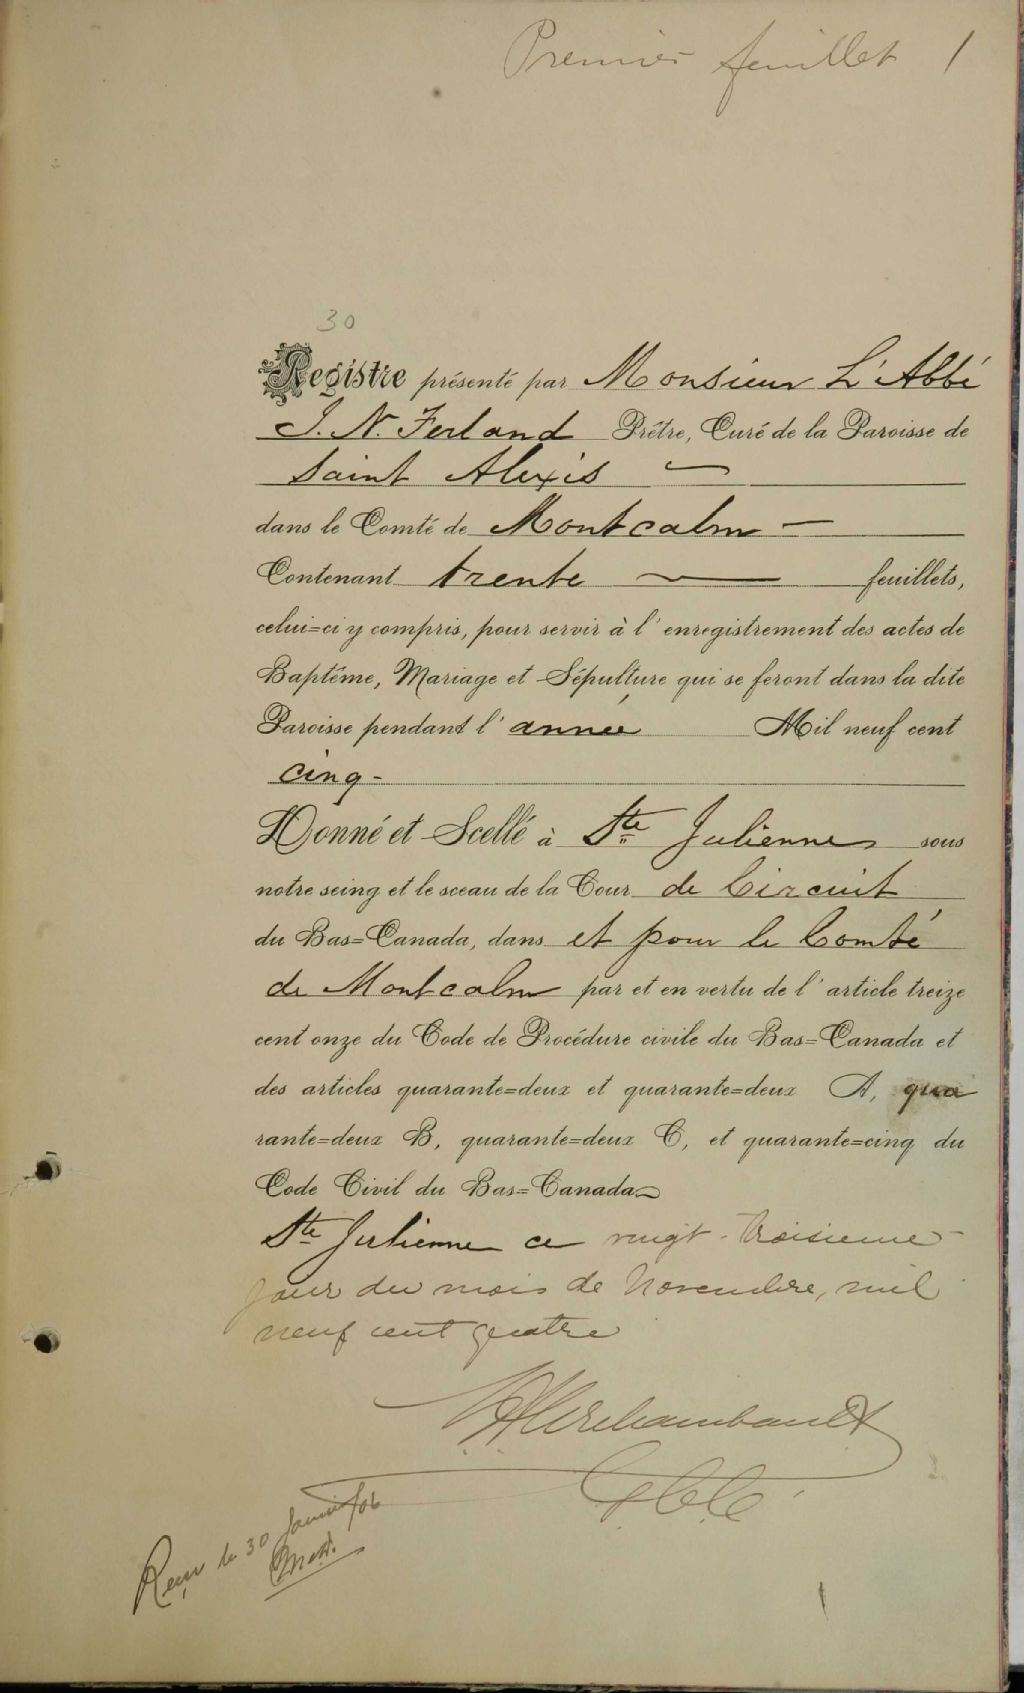 Premier feuillet 1
30
Registre présenté par Monsieur L'Abbé
J. N. Ferland Prêtre, Curé de la Paroisse de
Saint Alexis —
dans le Comté de Montcalm —
Contenant trente — feuillets,
celui=ci y compris, pour servir à l'enregistrement des actes de
Baptême, Mariage et Sépulture qui se feront dans la dite
Paroisse pendant l'année Mil neuf cent
cinq -
Donné et Scellé à Ste Julienne sous
notre seing et le sceau de la Cour de Circuit
du Bas=Canada, dans et pour le Comté
de Montcalm par et en vertu de l'article treize
cent onze du Code de Procédure civile du Bas=Canada et
des articles quarante=deux et quarante=deux A, qua
rante=deux B, quarante=deux C, et quarante=cinq du
Code Civil du Bas=Canada
Ste Julienne ce vingt-troisieme
jour du mois de Novembre, mil
neuf cent quatre
Archambault
G.C.C.
Reçu le 30 Janvier/06